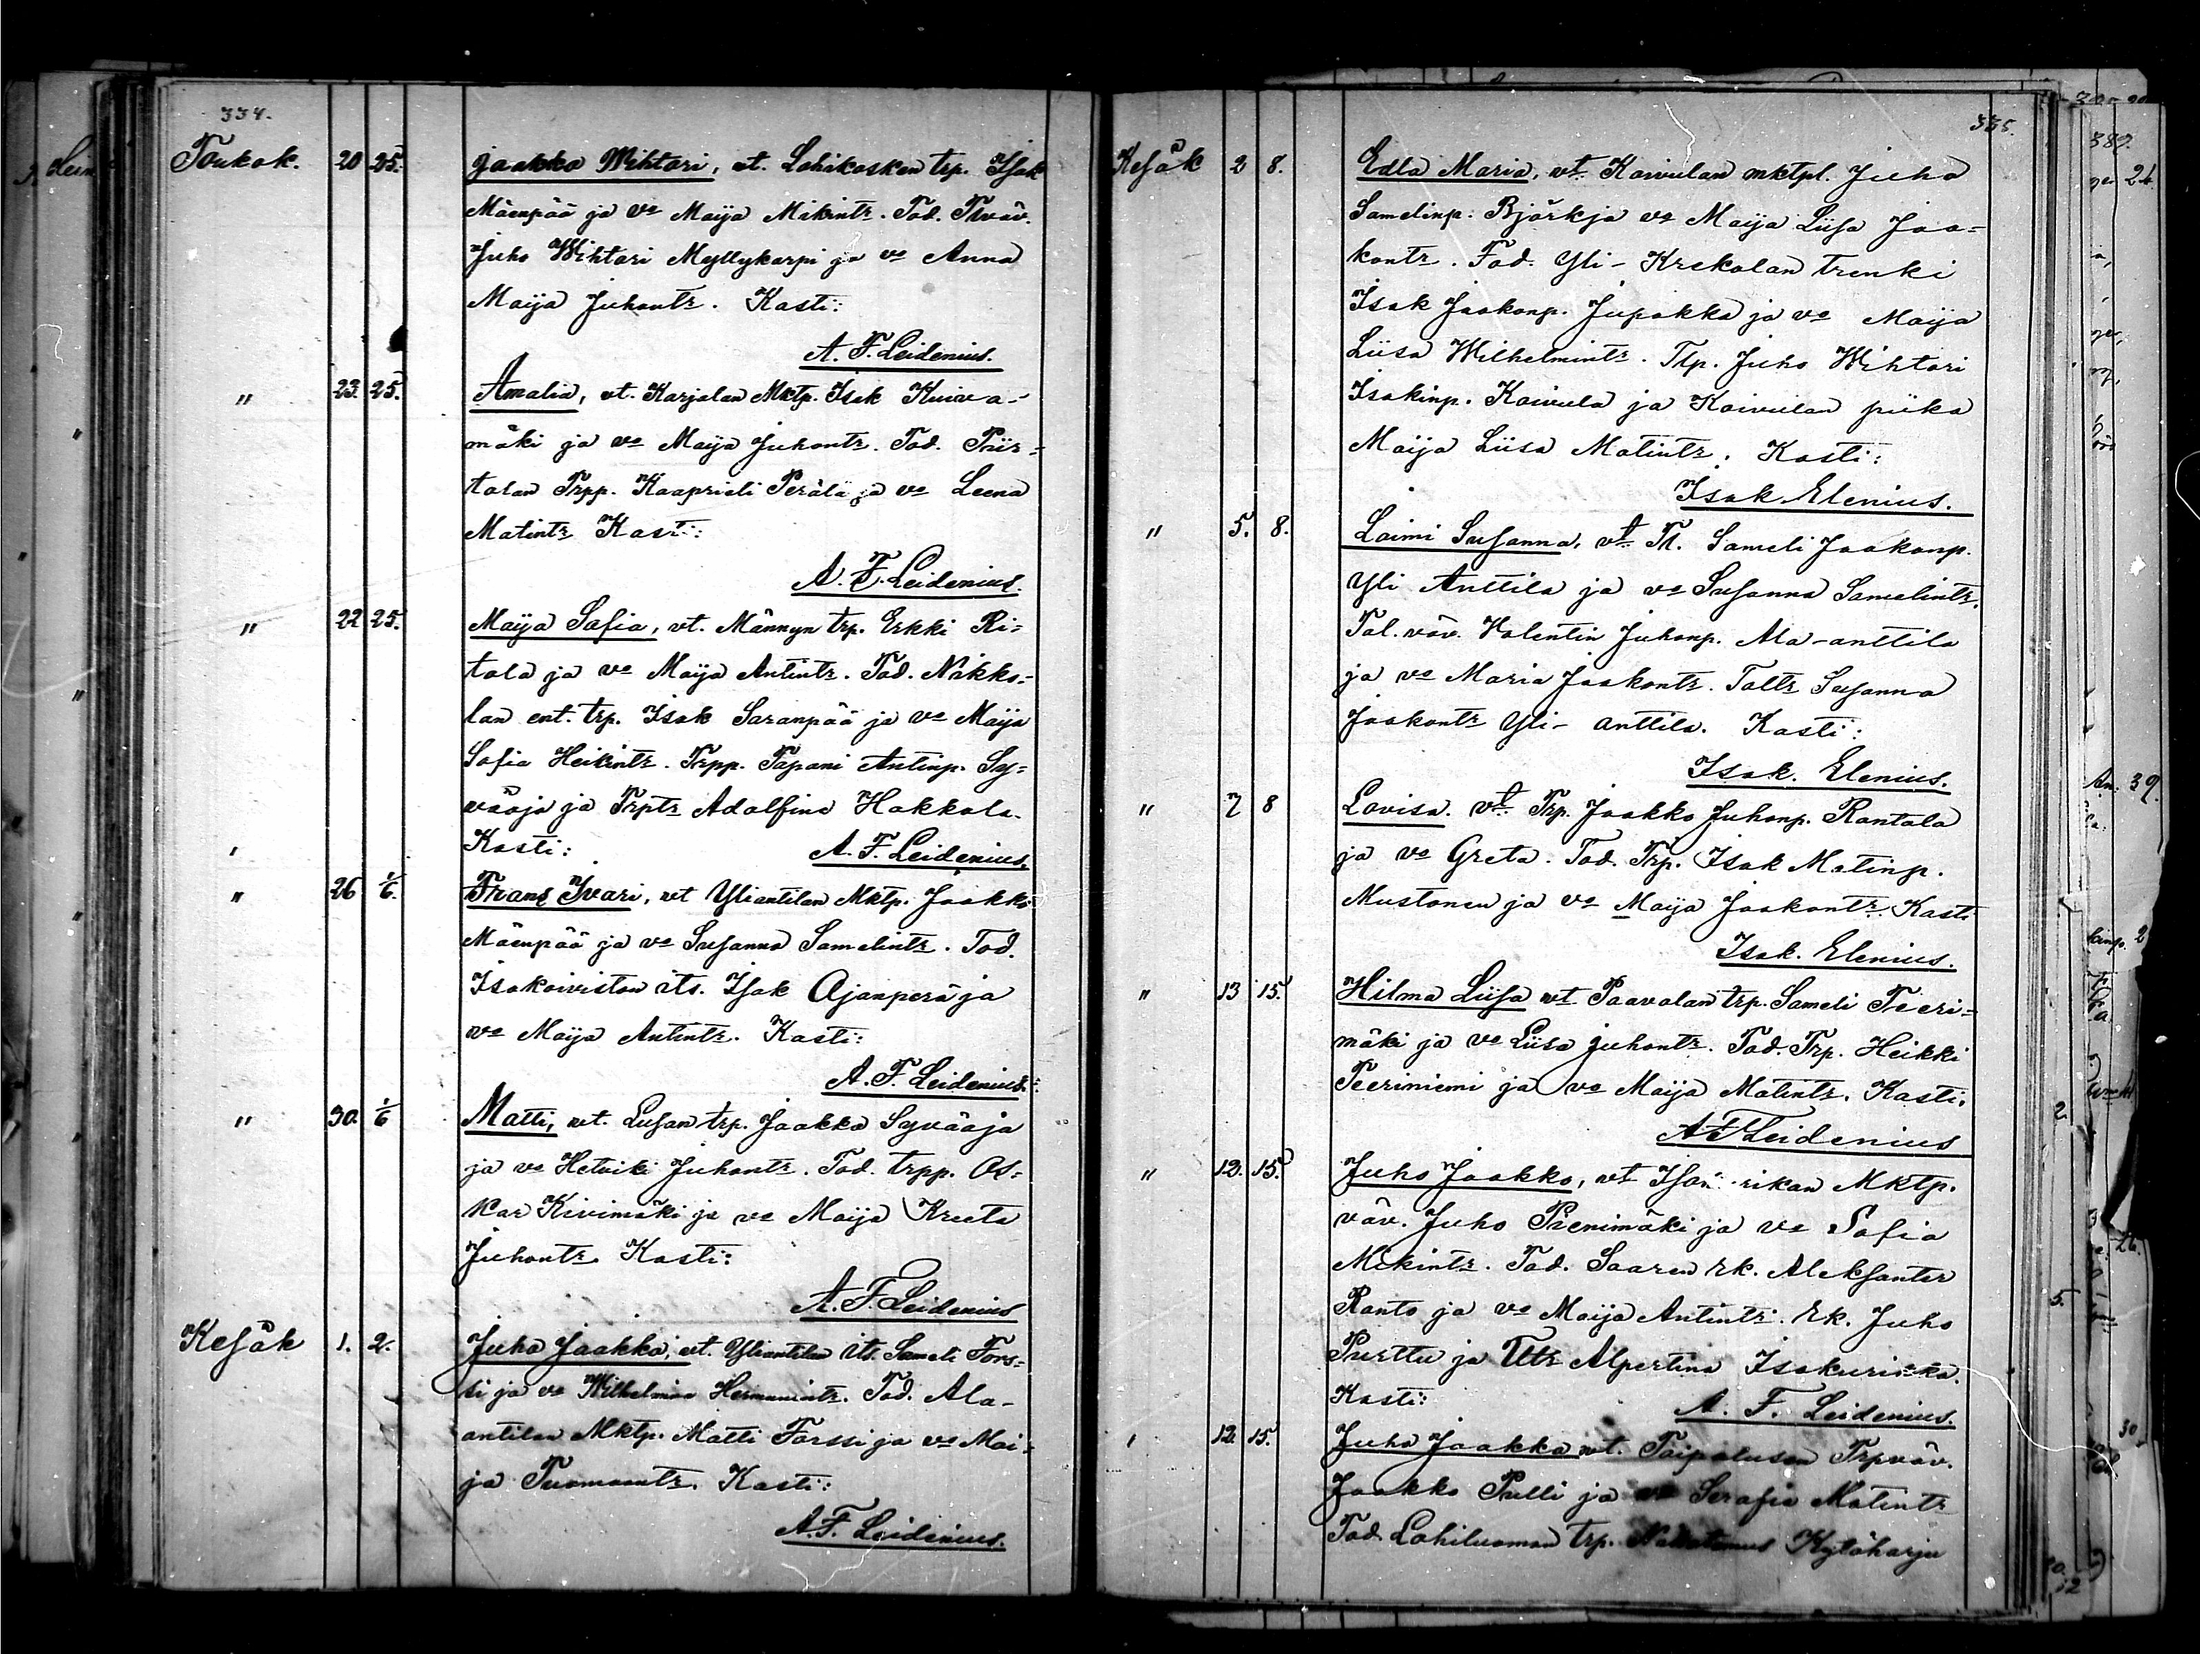 334.
Toukok. 20 25. Jaakko Wihtori, vt. Lohikosken trp. Isak
Mäenpää ja vo Maija Mikintr. Tod. Tlväv.
Juho Wihtori Myllykarpi ja vo Anna
Maija Juhontr. Kasti:
A. F. Leidenius.
" 23. 25. Amalia, vt. Karjalan Mktp. Isak Kuiva-
mäki ja vo Maija Juhontr. Tod. Piir=
talan Trpp. Kaaprieli Perälä ja vo Leena
Matintr Kasti:
A. F. Leidenius.
" 22 25. Maija Sofia, vt. Männyn trp. Erkki Ri=
tala ja vo Maija Antintr. Tod. Näkko=
lan ent. trp. Isak Saranpää ja vo Maija
Sofia Heikintr. Trpp. Tapani Antinp. Sy=
vääja ja Trptr Adolfina Hakkola.
Kasti: A. F. Leidenius.
" 26 1/6. Frans Ivari, vt Yliantilan Mktp. Jaakko
Mäenpää ja vo Susanna Samelintr. Tod.
Isokoiviston its. Isak Ojanperä ja
vo Maija Antintr. Kasti:
A. F. Leidenius.
" 30. 1/6 Matti, vt. Lusan trp. Jaakko Syvääja
ja vo Hetviki Juhontr. Tod. trpp. Os=
kar Kivimäki ja vo Maija Kreeta
Juhontr. Kasti:
A. F. Leidenius
Kesäk 1. 2. Juho Jaakko, vt. Yliantilan its. Sameli Fors=
si ja vo Wilhelmina Hermanintr. Tod. Ala-
antilan Mktp. Matti Forssi ja vo Mai=
ja Tuomaantr. Kasti:
A. F. Leidenius.
335.
Kesäk 2 8. Edla Maria, vt. Koivulan mktpl. Juho
Samelinp. Björk ja vo Maija Liisa Jaa=
kontr. Tod. Yli-Krekolan trenki
Isak Jaakonp. Jupakka ja vo Maija
Liisa Wilhelmintr. Tlp. Juho Wihtori
Isakinp. Koivula ja Koivulan piika
Maija Liisa Matintr. Kasti:
Isak Elenius.
" 5. 8. Laimi Susanna, vt. Tl. Sameli Jaakonp.
Yli Anttila ja vo Susanna Samelintr.
Tal. väv. Valentin Juhonp. Ala-anttila
ja vo Maria Jaakontr. Taltr Susanna
Jaakontr Yli-anttila. Kasti:
Isak. Elenius.
" 7 8 Lovisa. vt. Trp. Jaakko Juhonp. Rantala
ja vo Greta. Tod. Trp. Isak Matinp.
Mustonen ja vo Maija Jaakontr. Kasti
Isak. Elenius.
" 13 15. Hilma Liisa vt Paavolan trp. Sameli Teeri=
mäki ja vo Liisa Juhontr. Tod. Trp. Heikki
Teeriniemi ja vo Maija Matintr. Kasti.
A F Leidenius
" 12. 15. Juho Jaakko, vt rikan Mktp.
väv. Juho Pienimäki ja vo Sofia
Mikintr. Tod. Saaren rk. Aleksanter
Ranto ja vo Maija Antintr. rk. Juho
Purttu ja Ttr Alpertina Isokurikka.
Kasti: A. F. Leidenius.
" 12. 15. Juho Jaakko vt. Taipaluson Trpväv.
Jaakko Pulli ja vo Serafia Matintr
Tod. Lohiluoman trp. Kytöharju